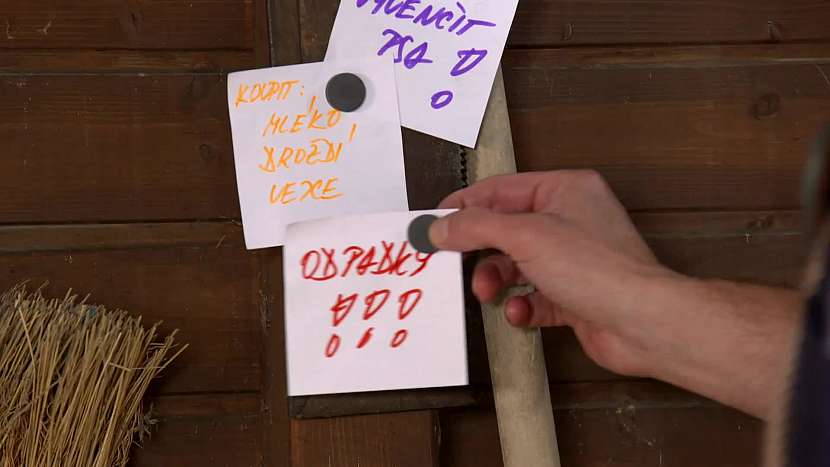 VYVENČIT
PSA !!
KOUPIT:
MLÉKO,
DROŽDÍ,
VEJCE
ODPADKY
!!!